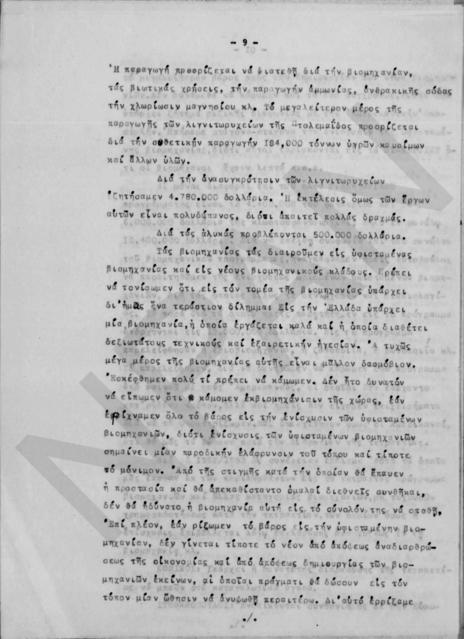 - 9 -
Ἡ παραγωγή προορίζεται νά διατεθῇ διά τήν βιομηχανίαν,
τάς βιωτικάς χρήσεις, τήν παραγωγήν ἀμμωνίας, ἀνθρακικῆς σόδας
τήν χλωρίωσιν μαγνησίου κλ. Τό μεγαλείτερον μέρος τῆς
παραγωγῆς τῶν λιγνιτωρυχείων τῆς Πτολεμαΐδος προορίζεται
διά τήν συνθετικήν παραγωγήν 184.000 τόννων ὑγρῶν καυσίμων
καί ἄλλων ὑλῶν.
Διά τήν ἀνασυγκρότησιν τῶν λιγνιτωρυχείων
ἐζητήσαμεν 4.780.000 δολλάρια. Ἡ ἐκτέλεσις ὅμως τῶν ἔργων
αὐτῶν εἶναι πολυδάπανος, διότι ἀπαιτεῖ πολλάς δραχμάς.
Διά τάς ἁλυκάς προβλέπονται 500.000 δολλάρια.
Τάς βιομηχανίας τάς διαιροῦμεν εἰς ὑφισταμένας
βιομηχανίας καί εἰς νέους βιομηχανικούς κλάδους. Πρέπει
νά τονίσωμεν ὅτι εἰς τόν τομέα τῆς βιομηχανίας ὑπάρχει
δι'ἡμᾶς ἕνα τεράστιον δίλημμα: Εἰς τήν Ἑλλάδα ὑπάρχει
μία βιομηχανία, ἡ ὁποία ἐργάζεται καλά καί ἡ ὁποία διαθέτει
δεξιωτάτους τεχνικούς καί ἐξαιρετικήν ἡγεσίαν. Ἀτυχῶς
μέγα μέρος τῆς βιομηχανίας αὐτῆς εἶναι μᾶλλον δασμόβιον.
Ἐσκέφθημεν πολύ τί πρέπει νά κάμωμεν. Δέν ἦτο δυνατόν
νά εἴπωμεν ὅτι κάμομεν ἐκβιομηχάνισιν τῆς χώρας, ἐάν
ἐρίχναμεν ὅλο τό βάρος εἰς τήν ἐνίσχυσιν τῶν ὑφισταμένων
βιομηχανιῶν, διότι ἐνίσχυσις τῶν ὑφισταμένων βιομηχανιῶν
σημαίνει μίαν παροδικήν ἐλάφρυνσιν τοῦ τόπου καί τίποτε
τό μόνιμον. Ἀπό τῆς στιγμῆς κατά τήν ὁποίαν θά ἔπαυεν
ἡ προστασία καί θά ἀπεκαθίσταντο ὁμαλαί διεθνεῖς συνθῆκαι,
δέν θά ἠδύνατο ἡ βιομηχανία αὐτή εἰς τό σύνολόν της νά σταθῇ.
Ἐπί πλέον, ἐάν ρίξωμεν τό βάρος εἰς τήν ὑφισταμένην βιο-
μηχανίαν, δέν γίνεται τίποτε τό νέον ἀπό ἀπόψεως ἀναδιαρθρώ-
σεως τῆς οἰκονομίας καί ἀπό ἀπόψεως δημιουργίας τῶν βιο-
μηχανιῶν ἐκείνων, αἱ ὁποῖαι πράγματι θά δώσουν εἰς τόν
τόπον μίαν ὤθησιν νά ἀνυψωθῇ περαιτέρω. Δι'αὐτό ἐρρίξαμε
./.